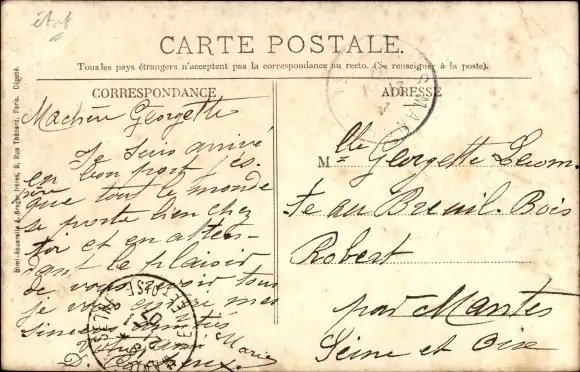 CARTE POSTALE.
Tous les pays étrangers n'acceptent pas la correspondance au recto. (Se renseigner à la poste).
CORRESPONDANCE
Ma chère Georgette
Je suis arrivé
en bon port j'es-
père que tout le monde
se porte bien chez
toi et en atten-
dant le plaisir
de vous revoir tous
je vous envoie mes
sincères amitiés
Marie
D.
ADRESSE
Mlle Georgette Leconte
Fe au Breuil. Bois
Robert
par Mantes
Seine et Oise
SEINE ET OISE